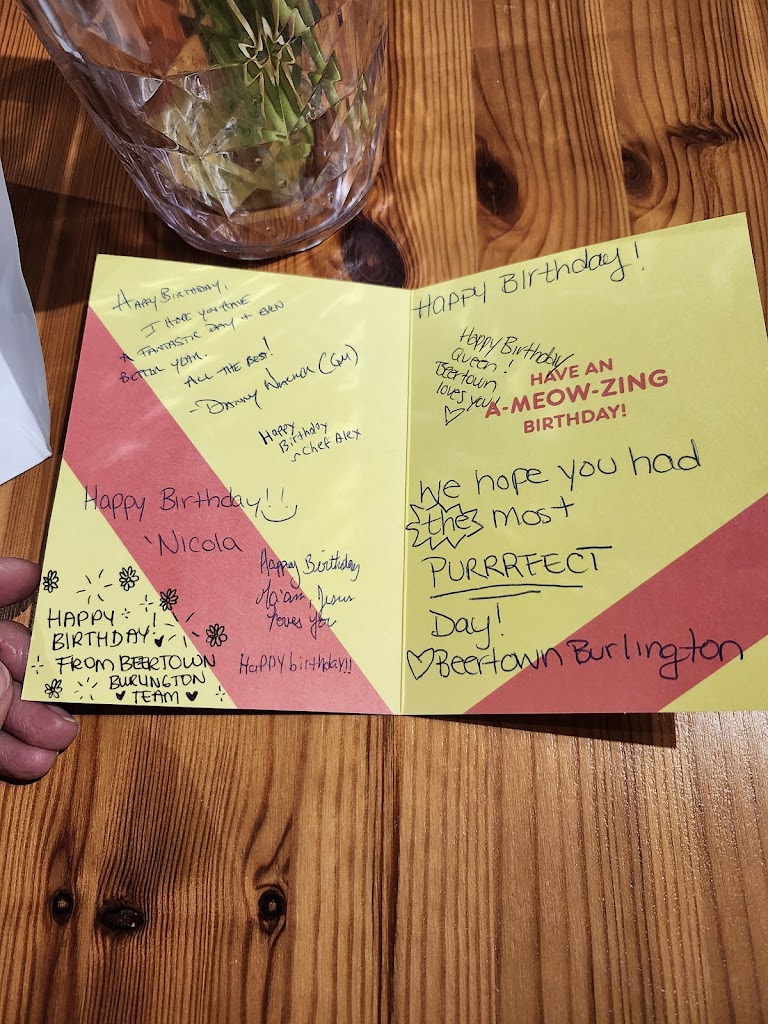 HAPPY BIRTHDAY,
I HOPE YOU HAVE
A FANTASTIC DAY + EVEN
BETTER YEAR.
ALL THE BEST!
- DANNY (GM)
Happy
Birthday
Chef Alex
Happy Birthday!!
Nicola
Happy Birthday
Ma'am, Jesus
loves you
Happy birthday!!
HAPPY
BIRTHDAY!
FROM BEERTOWN
BURLINGTON
TEAM
Happy Birthday!
Happy Birthday
Queen!
Beertown
loves you!
HAVE AN
A-MEOW-ZING
BIRTHDAY!
We hope you had
the most
PURRRFECT
Day!
Beertown Burlington